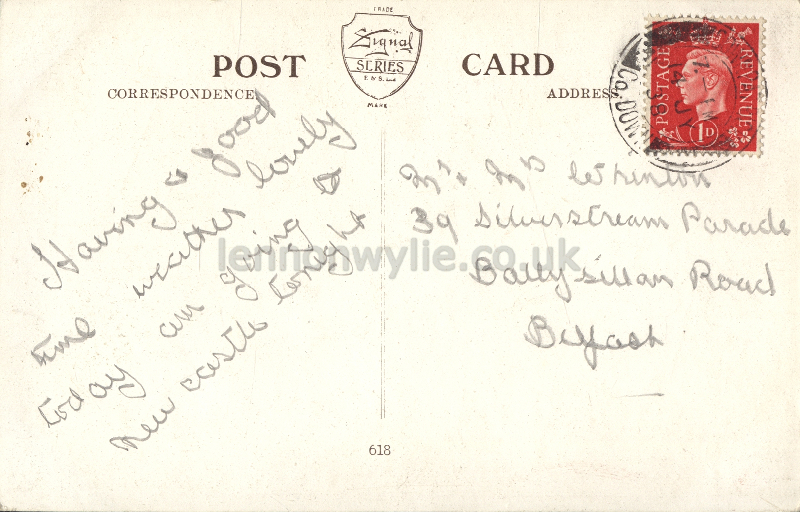 TRADE
Signal
SERIES
E & S. L.
MARK
POST CARD
CORRESPONDENCE
ADDRESS
POSTAGE REVENUE
1D
14 JY
38
Co. DOWN
Having a good
time weather lovely
today am going to
new castle tonight
Mr & Mrs
39 Silverstream Parade
Ballysillan Road
Belfast
618
lennonwylie.co.uk